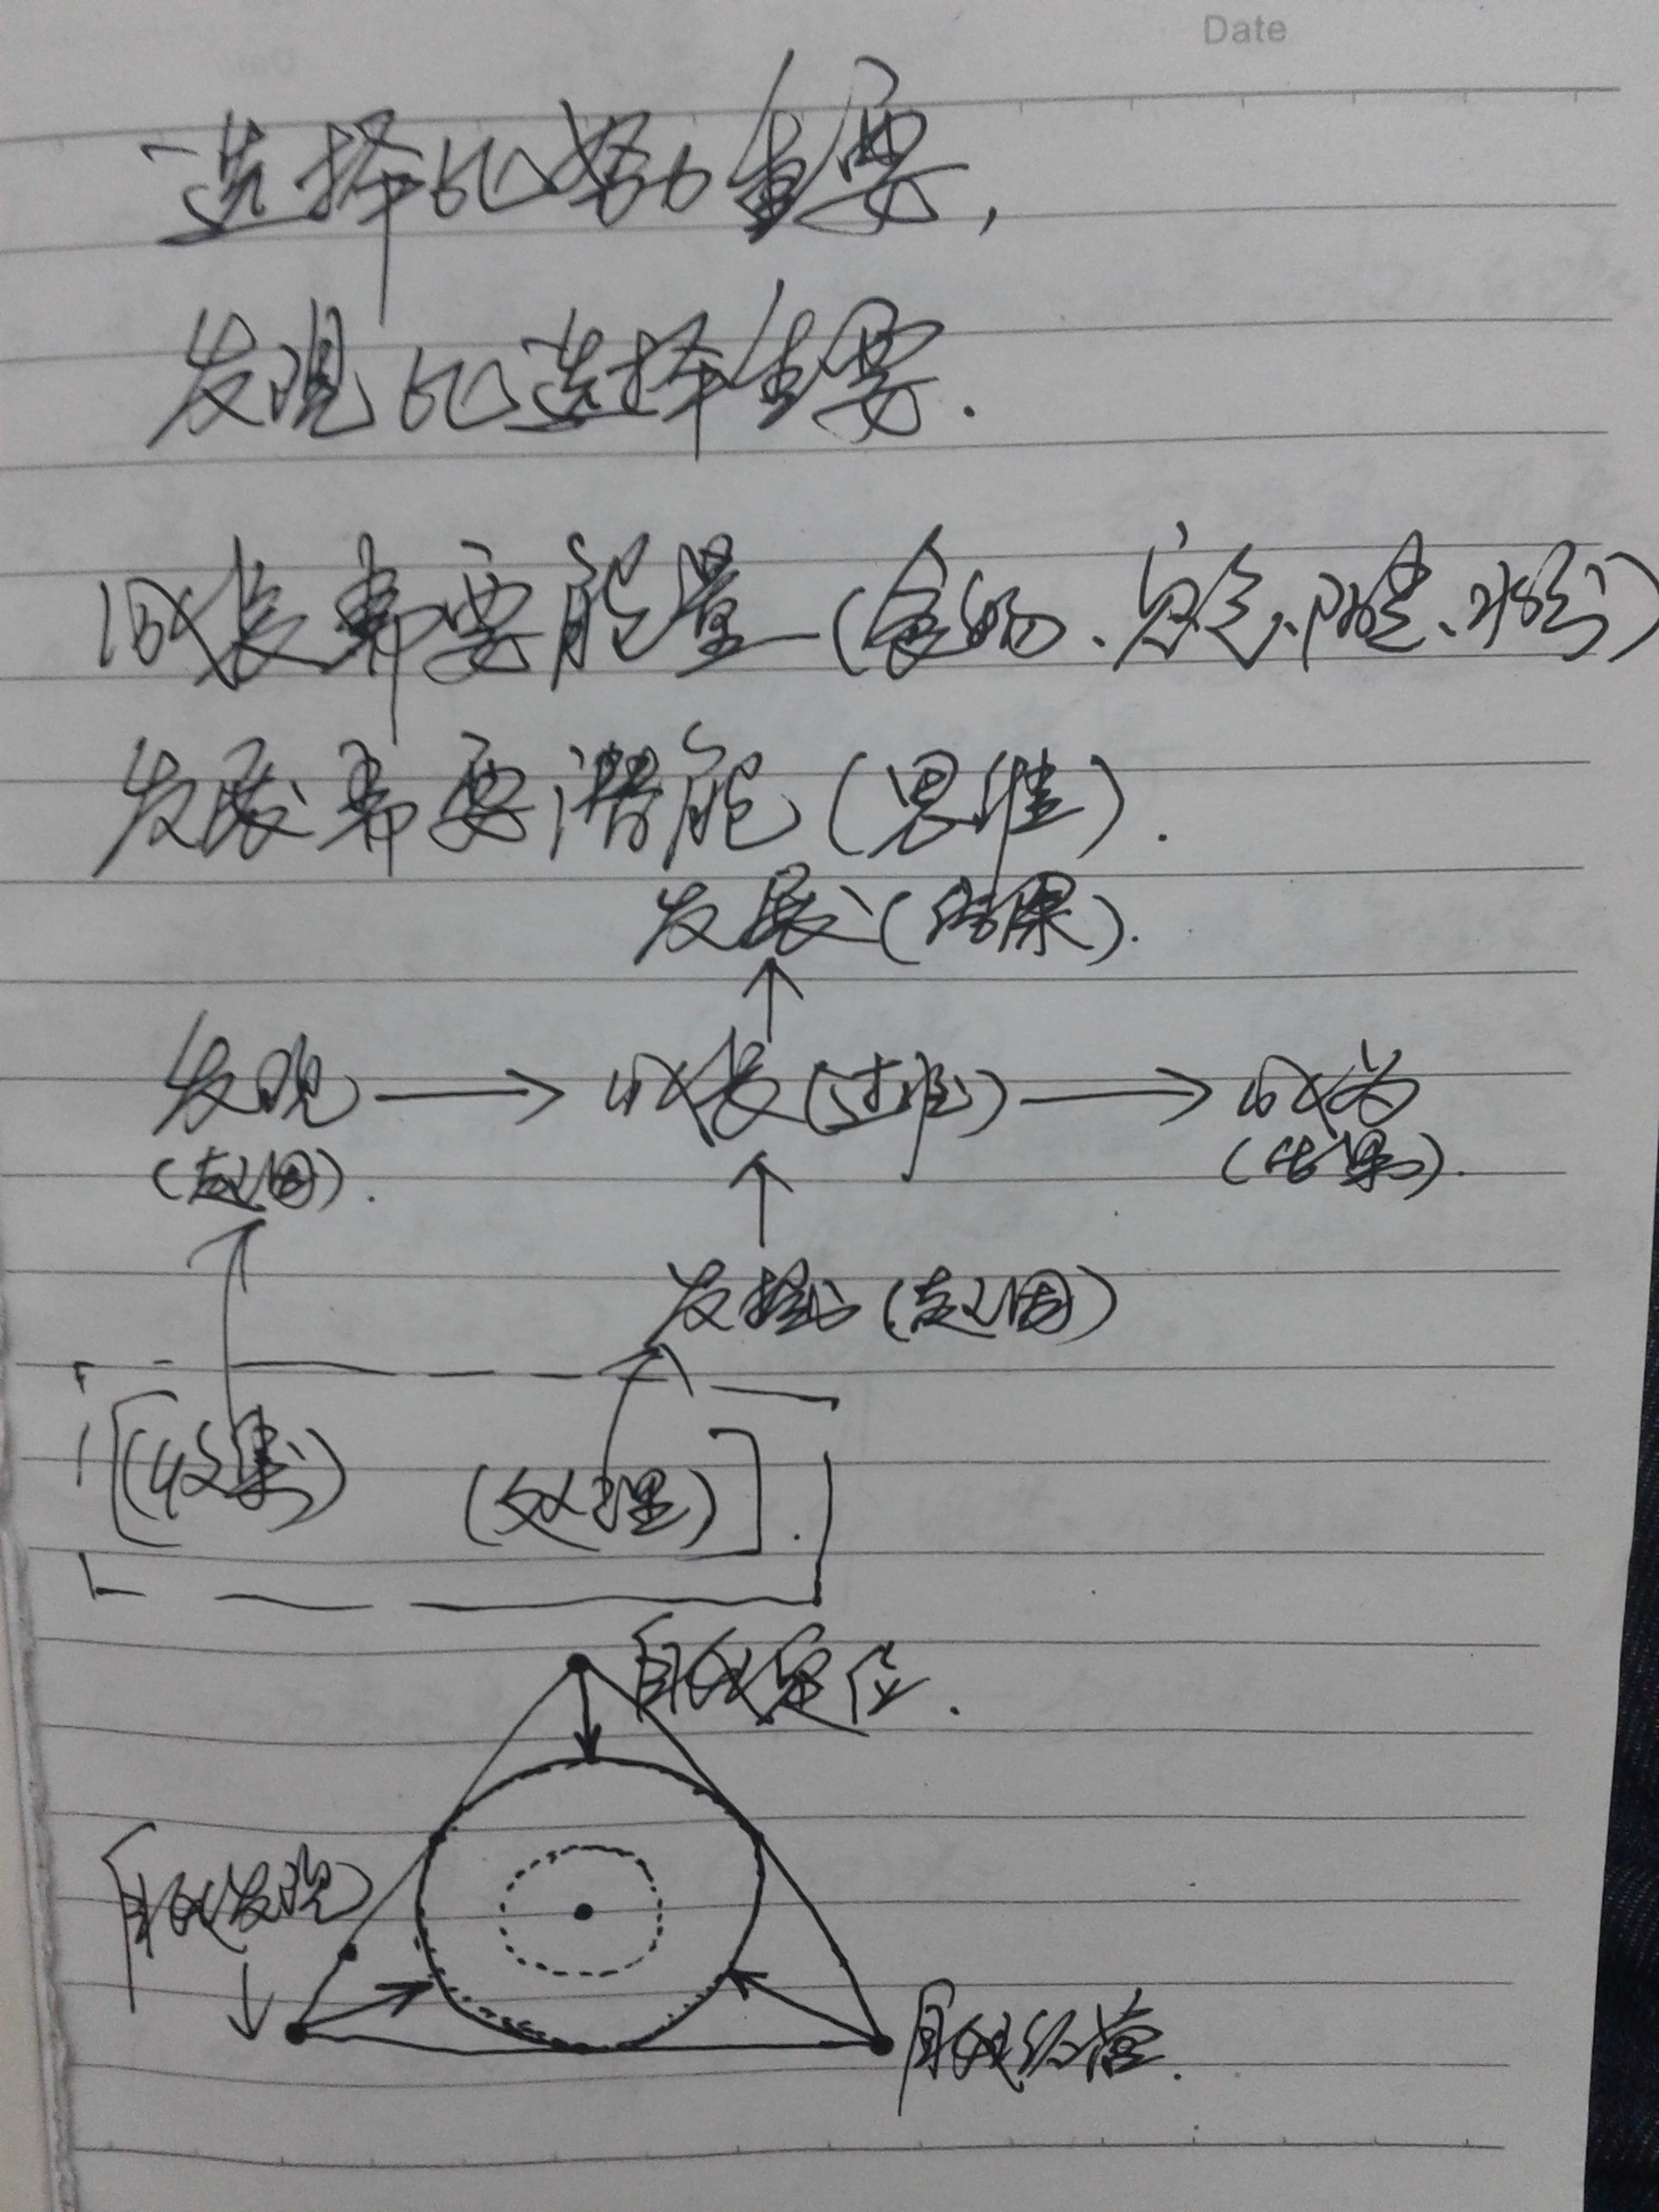 Date
选择比努力重要,
发现比选择重要.
成长需要能量(食物、空气、阳光、水分)
发展需要潜能(思维).
发展(结果).
发现 → 成长(过程) → 成为
(起因). (结果).
发掘(起因)
[(收集) (处理)].
自我定位.
自我发现
自我经营.